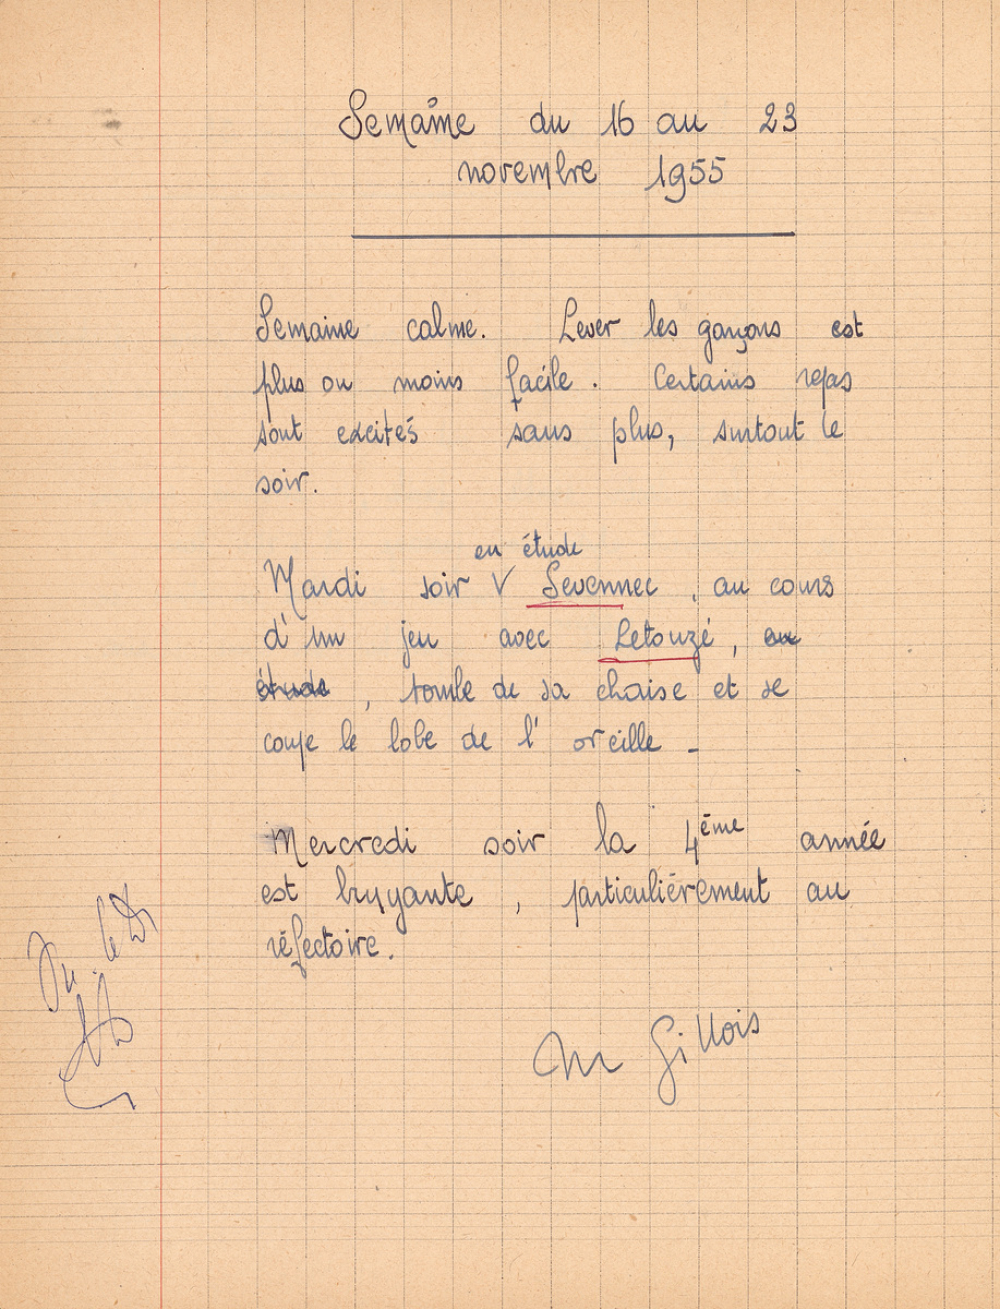 Semaine du 16 au 23
novembre 1955
Semaine calme. Lever les garçons est
plus ou moins facile. Certains repas
sont excités sans plus, surtout le
soir.
en étude
Mardi soir V Sevennec, au cours
d'un jeu avec Letouzé, en
étude, tombe de sa chaise et se
coupe le lobe de l'oreille -
Mercredi soir la 4ème année
est bruyante, particulièrement au
réfectoire.
Vu le D
M Gillois